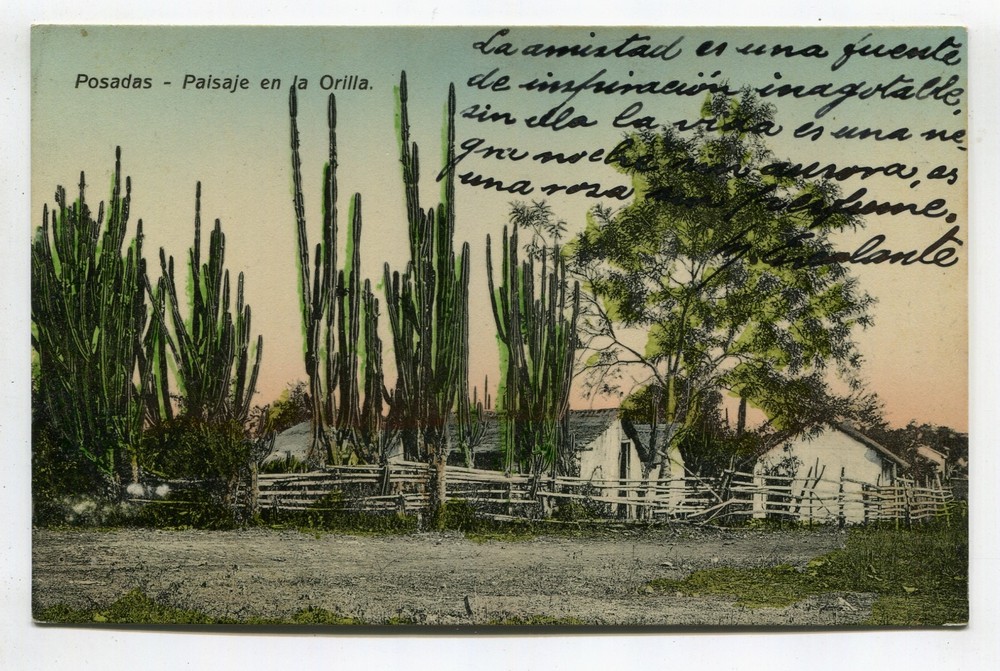 Posadas - Paisaje en la Orilla.
La amistad es una fuente
de inspiración inagotable,
sin ella la vida es una ne-
gra noche sin aurora, es
una rosa sin perfume.